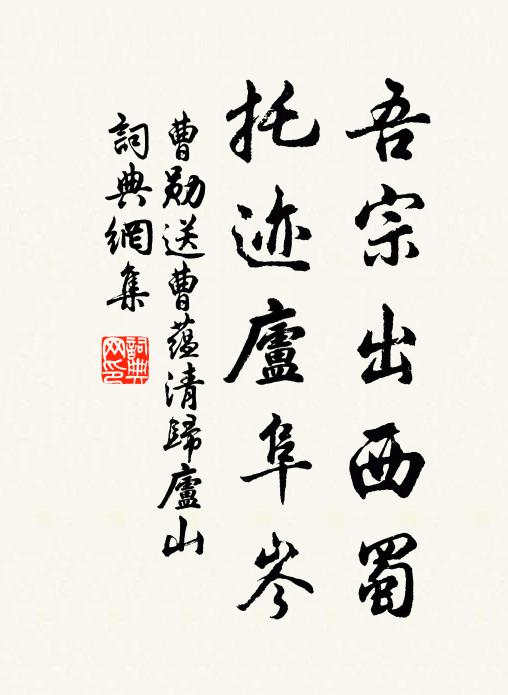 吾宗出西蜀
托迹廬阜岑
曹勛送曹藴清歸廬山
詞典網集
詞典網印